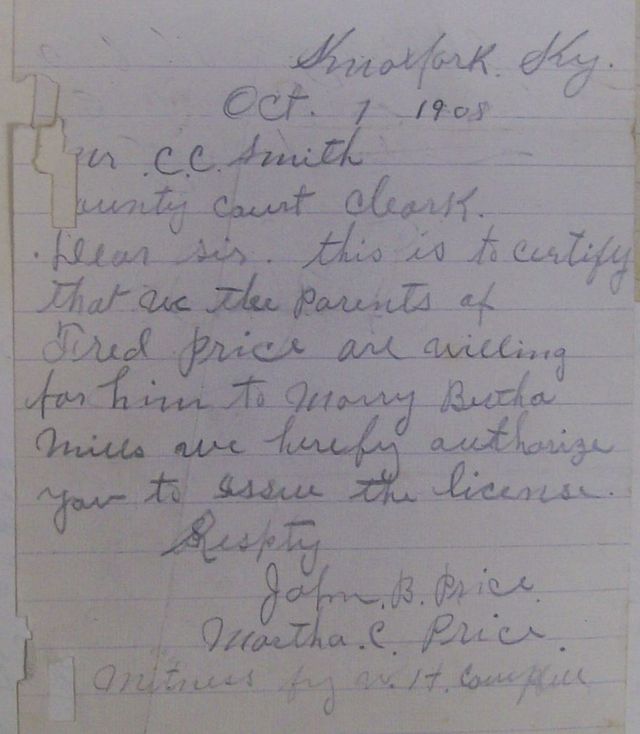 Knoxfork. Ky.
Oct. 7 1908
C.C. Smith
ounty Court Cleark.
Dear sir. this is to certify
that we the Parents of
Fred Price are willing
for him to Marry Bertha
Mills we hereby authorize
you to issue the license.
Respty
John. B. Price.
Martha. C. Price.
Witness by W. H. Campbell